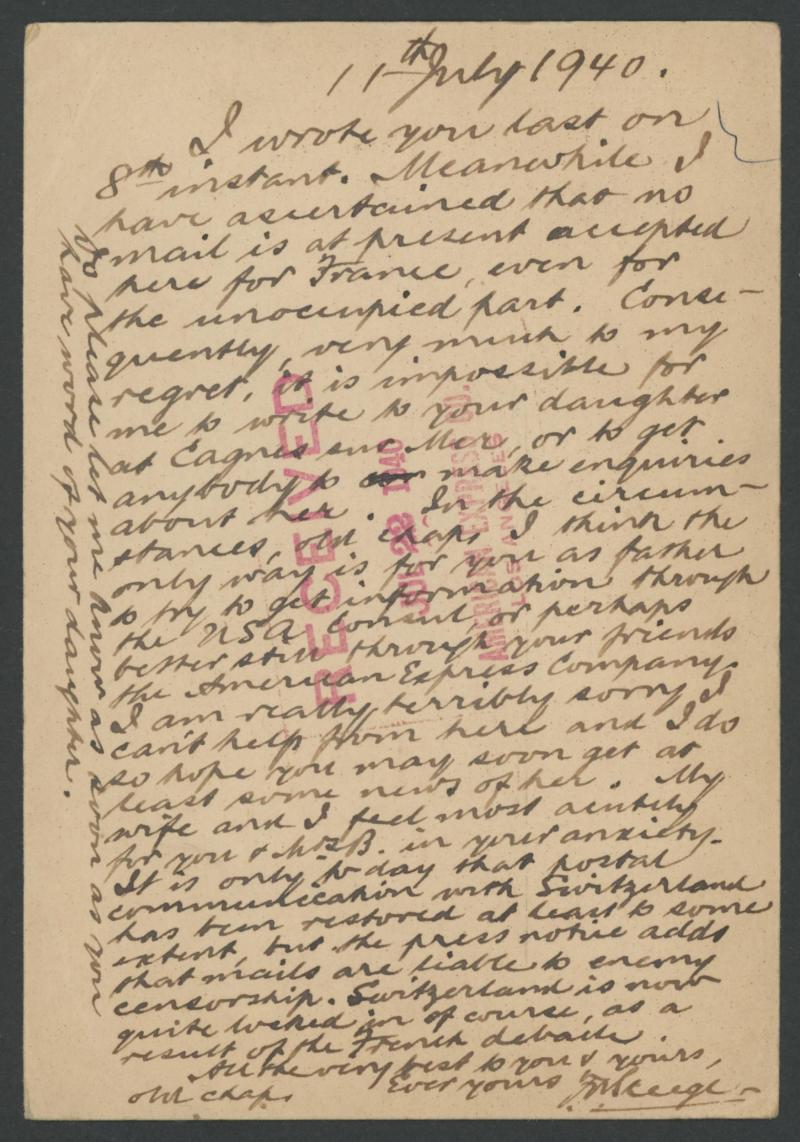 11th July 1940.
I wrote you last on
8th instant. Meanwhile I
have ascertained that no
mail is at present accepted
here for France, even for
the unoccupied part. Conse-
quently, very much to my
regret, it is impossible for
me to write to your daughter
at Cagnes sur Mer, or to get
anybody to make enquiries
about her. In the circum-
stances, old chap, I think the
only way is for you as father
to try to get information through
the USA Consul or perhaps
better still through your friends
the American Express Company.
I am really terribly sorry I
can't help from here and I do
so hope you may soon get at
least some news of her. My
wife and I feel most acutely
for you & Mrs B. in your anxiety.
It is only to day that postal
communication with Switzerland
has been restored at least to some
extent, but the press notice adds
that mails are liable to enemy
censorship. Switzerland is now
quite locked in of course, as a
result of the French debacle.
All the very best to you & yours,
old chap. Ever yours
Do please let me know as soon as you
have word of your daughter.
RECEIVED
JUL 22 1940
AMERICAN EXPRESS CO.
LOS ANGELES